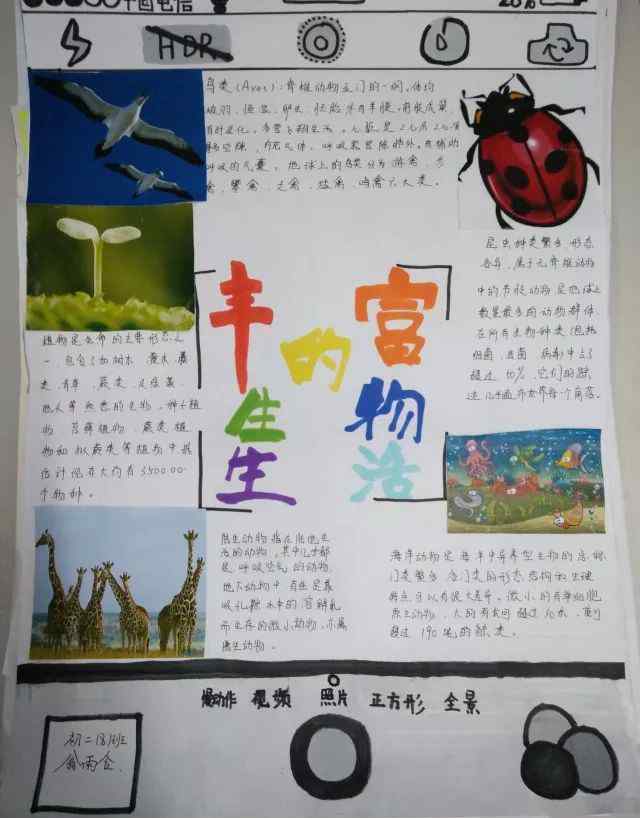 中国电信
20%
HDR
鸟类(Aves):脊椎动物亚门的一纲。体均
被羽,恒温,卵生,胚胎外有羊膜。前肢成翼,
有时退化。多营飞翔生活。心脏是2心房2心室
呼吸的气囊。地球上的鸟类分为游禽、涉
禽、攀禽、走禽、猛禽、鸣禽六大类。
昆虫种类繁多形态
各异,属于无脊椎动物
中的节肢动物是地球上
数量最多的动物群体
在所有生物种类(包括
细菌、真菌、病毒)中占了
超过50%,它们的踪
迹几乎遍布世界每个角落。
丰富
的
生物
生活
植物是生命的主要形态之
一,包含了如树木、灌木、藤
类、青草、蕨类、及绿藻、
地衣等熟悉的生物。种子植
物、苔藓植物、蕨类植
物和拟蕨类等植物中,据
估计现在大约有350000
个物种。
陆生动物指在陆地生
活的动物,其中几乎都
是呼吸空气的动物,
地下动物中有些是靠
吸孔隙水中的溶解氧
而生存的微小动物,亦属
陆生动物。
海洋动物是海洋中异养型生物的总称
门类繁多,各门类的形态结构和生理
特点可以有很大差异。微小的有单细胞
原生动物,大的有长可超过30米、重可
超过190吨的鲸类。
慢动作 视频 照片 正方形 全景
初二(8)班